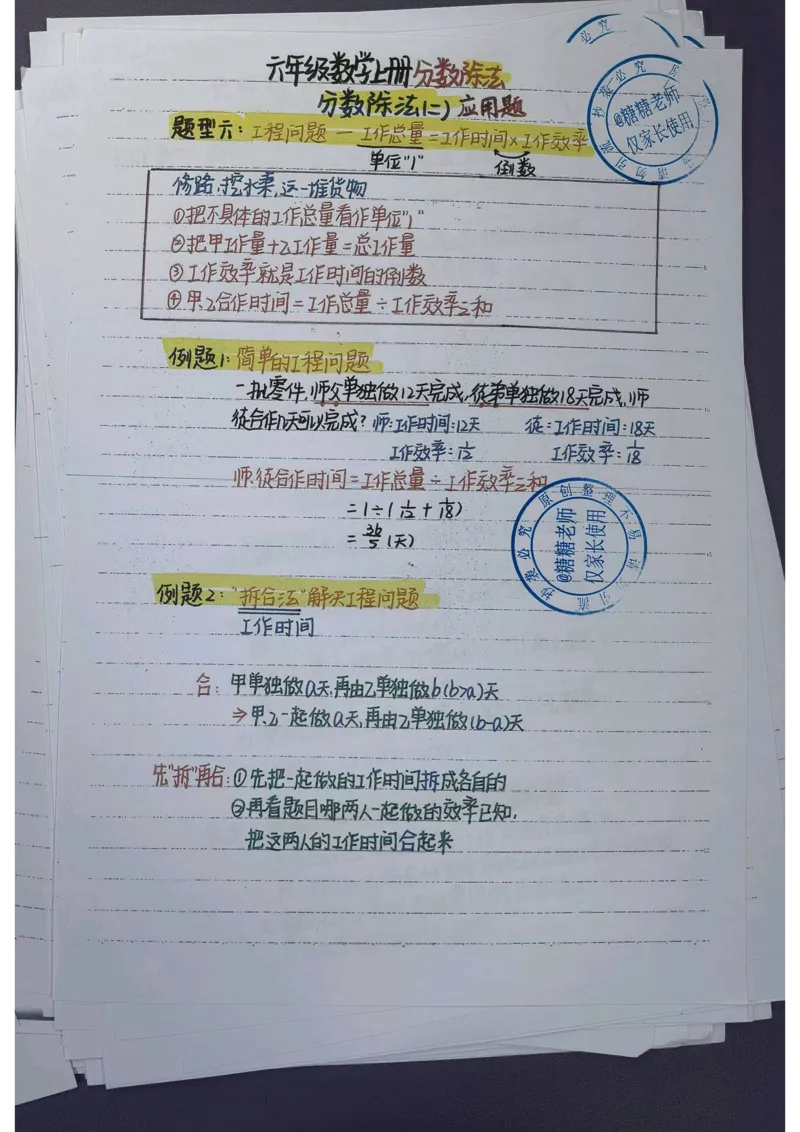 六年级数学上册分数除法
分数除法(二)应用题
题型六:工程问题—工作总量=工作时间×工作效率
单位"1" 倒数
修路,挖水渠,运一堆货物
①把不具体的工作总量看作单位"1"
②把甲工作量+乙工作量=总工作量
③工作效率就是工作时间的倒数
④甲乙合作时间=工作总量÷工作效率之和
例题1:简单的工程问题
一批零件,师父单独做12天完成,徒弟单独做18天完成,师
徒合作几天可以完成?师:工作时间:12天 徒:工作时间:18天
工作效率:1/12 工作效率:1/18
师徒合作时间=工作总量÷工作效率之和
=1÷(1/12+1/18)
=36/5(天)
原创整理不易
@糖糖老师
仅家长使用
抄袭必究
例题2:"拆合法"解决工程问题
工作时间
合:甲单独做a天,再由乙单独做b(b>a)天
⇒甲乙一起做a天,再由乙单独做(b-a)天
先"拆"再合:①先把一起做的工作时间拆成各自的
②再看题目哪两人一起做的效率已知,
把这两人的工作时间合起来
必究
抄袭必究
@糖糖老师
仅家长使用